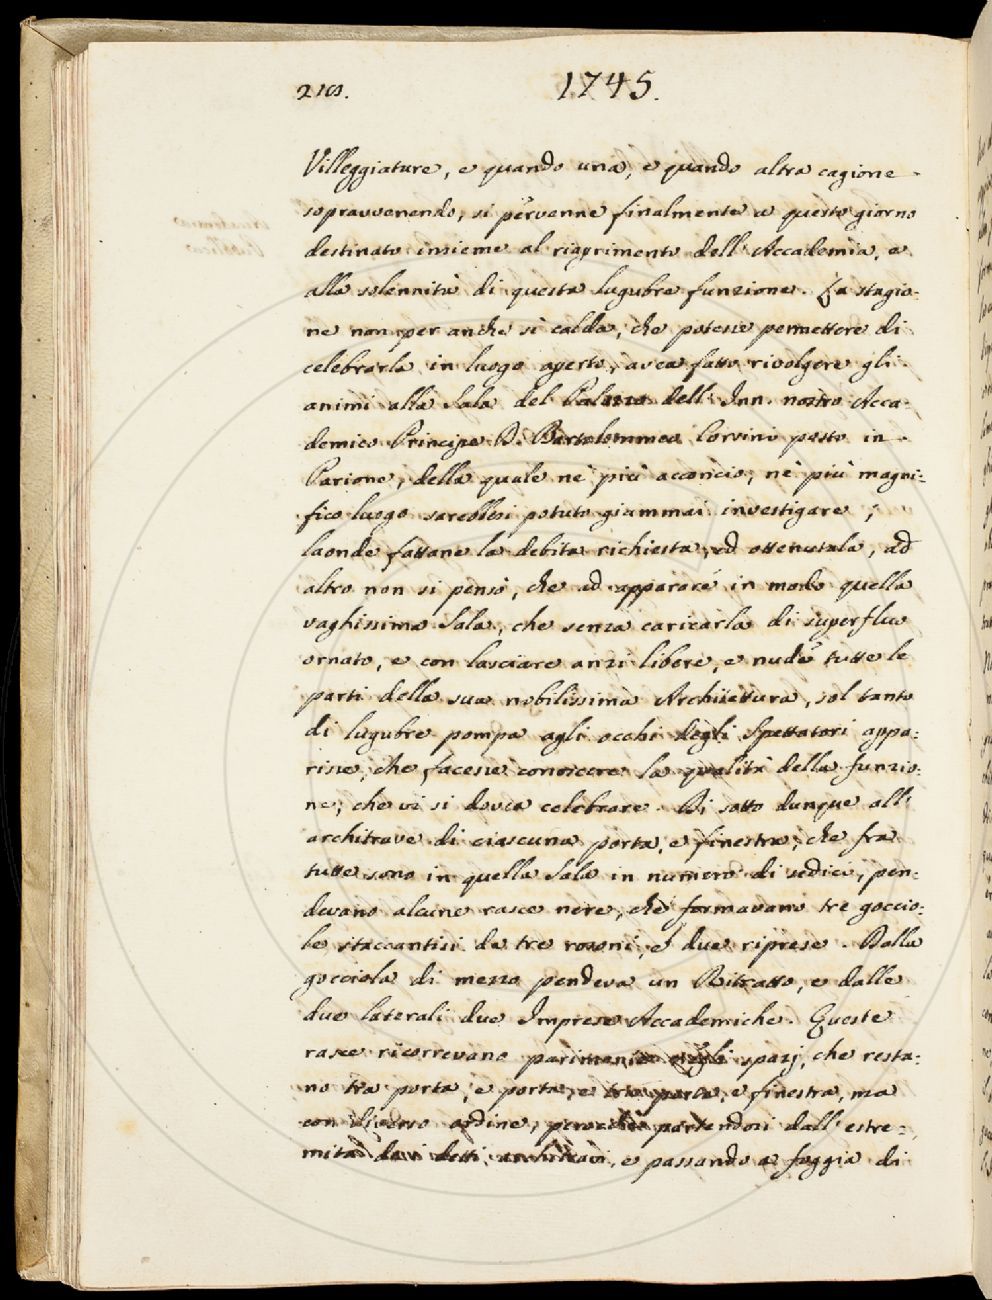 210. 1745.
Villeggiature, e quando una, e quando altra cagione
sopravvenendo, si pervenne finalmente a questo giorno
destinato insieme al riaprimento dell'Accademia, e
alla solennità di questa lugubre funzione. La stagio=
ne non per anche sì calda, che potesse permettere di
celebrarla in luogo aperto, avea fatto rivolgere gli
animi alla Sala del Palazzo dell'Inn. nostro Acca=
demico Principe D. Bartolommeo Corsini posto in
Parione, della quale nè più acconcio, nè più magni=
fico luogo sarebbesi potuto giammai investigare;
laonde fattane la debita richiesta, ed ottenutala, ad
altro non si pensò, che ad apparare in modo quella
vaghissima Sala, che senza caricarla di superfluo
ornato, e con lasciare anzi libere, e nude tutte le
parti della sua nobilissima Architettura, sol tanto
di lugubre pompa agli occhi degli Spettatori appa=
risse, che facesse conoscere la qualità della funzio=
ne, che vi si dovea celebrare. Di sotto dunque all'
architrave di ciascuna porta, e finestra, che fra
tutte sono in quella Sala in numero di sedici, pen=
devano alcune rasce nere, che formavano tre goccio=
le staccantisi da tre rosoni, e due riprese. Dalla
gocciola di mezzo pendeva un Ritratto, e dalle
due laterali due Imprese Accademiche. Queste
rasce ricorrevano parimente negli spazj, che resta=
no tra porta, e porta, e tra porta, e finestra, ma
con diverso ordine, perocchè partendosi dall'estre=
mità de i detti architravi, e passando a foggia di